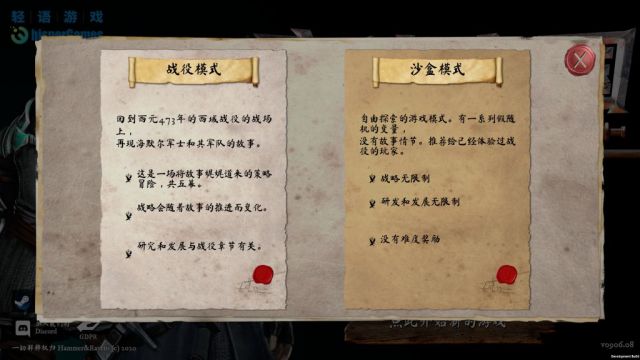 轻语游戏
hisperGames
战役模式
回到西元473年的西域战役的战场
上，
再现海默尔军士和其军队的故事。
这是一场将故事娓娓道来的策略
冒险，共五幕。
战略会随着故事的推进而变化。
研究和发展与战役章节有关。
沙盒模式
自由探索的游戏模式。有一系列假随
机的变量，
没有故事情节。推荐给已经体验过战
役的玩家。
战略无限制
研发和发展无限制
没有难度奖励
点此开始新的游戏
Discord
GDPR
一切解释权归 Hammer&Ravens(c) 2020
v0906.08
Development Build